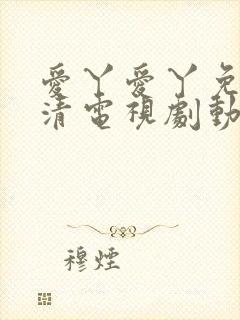 愛丫愛丫免
清電視劇動
穆煙